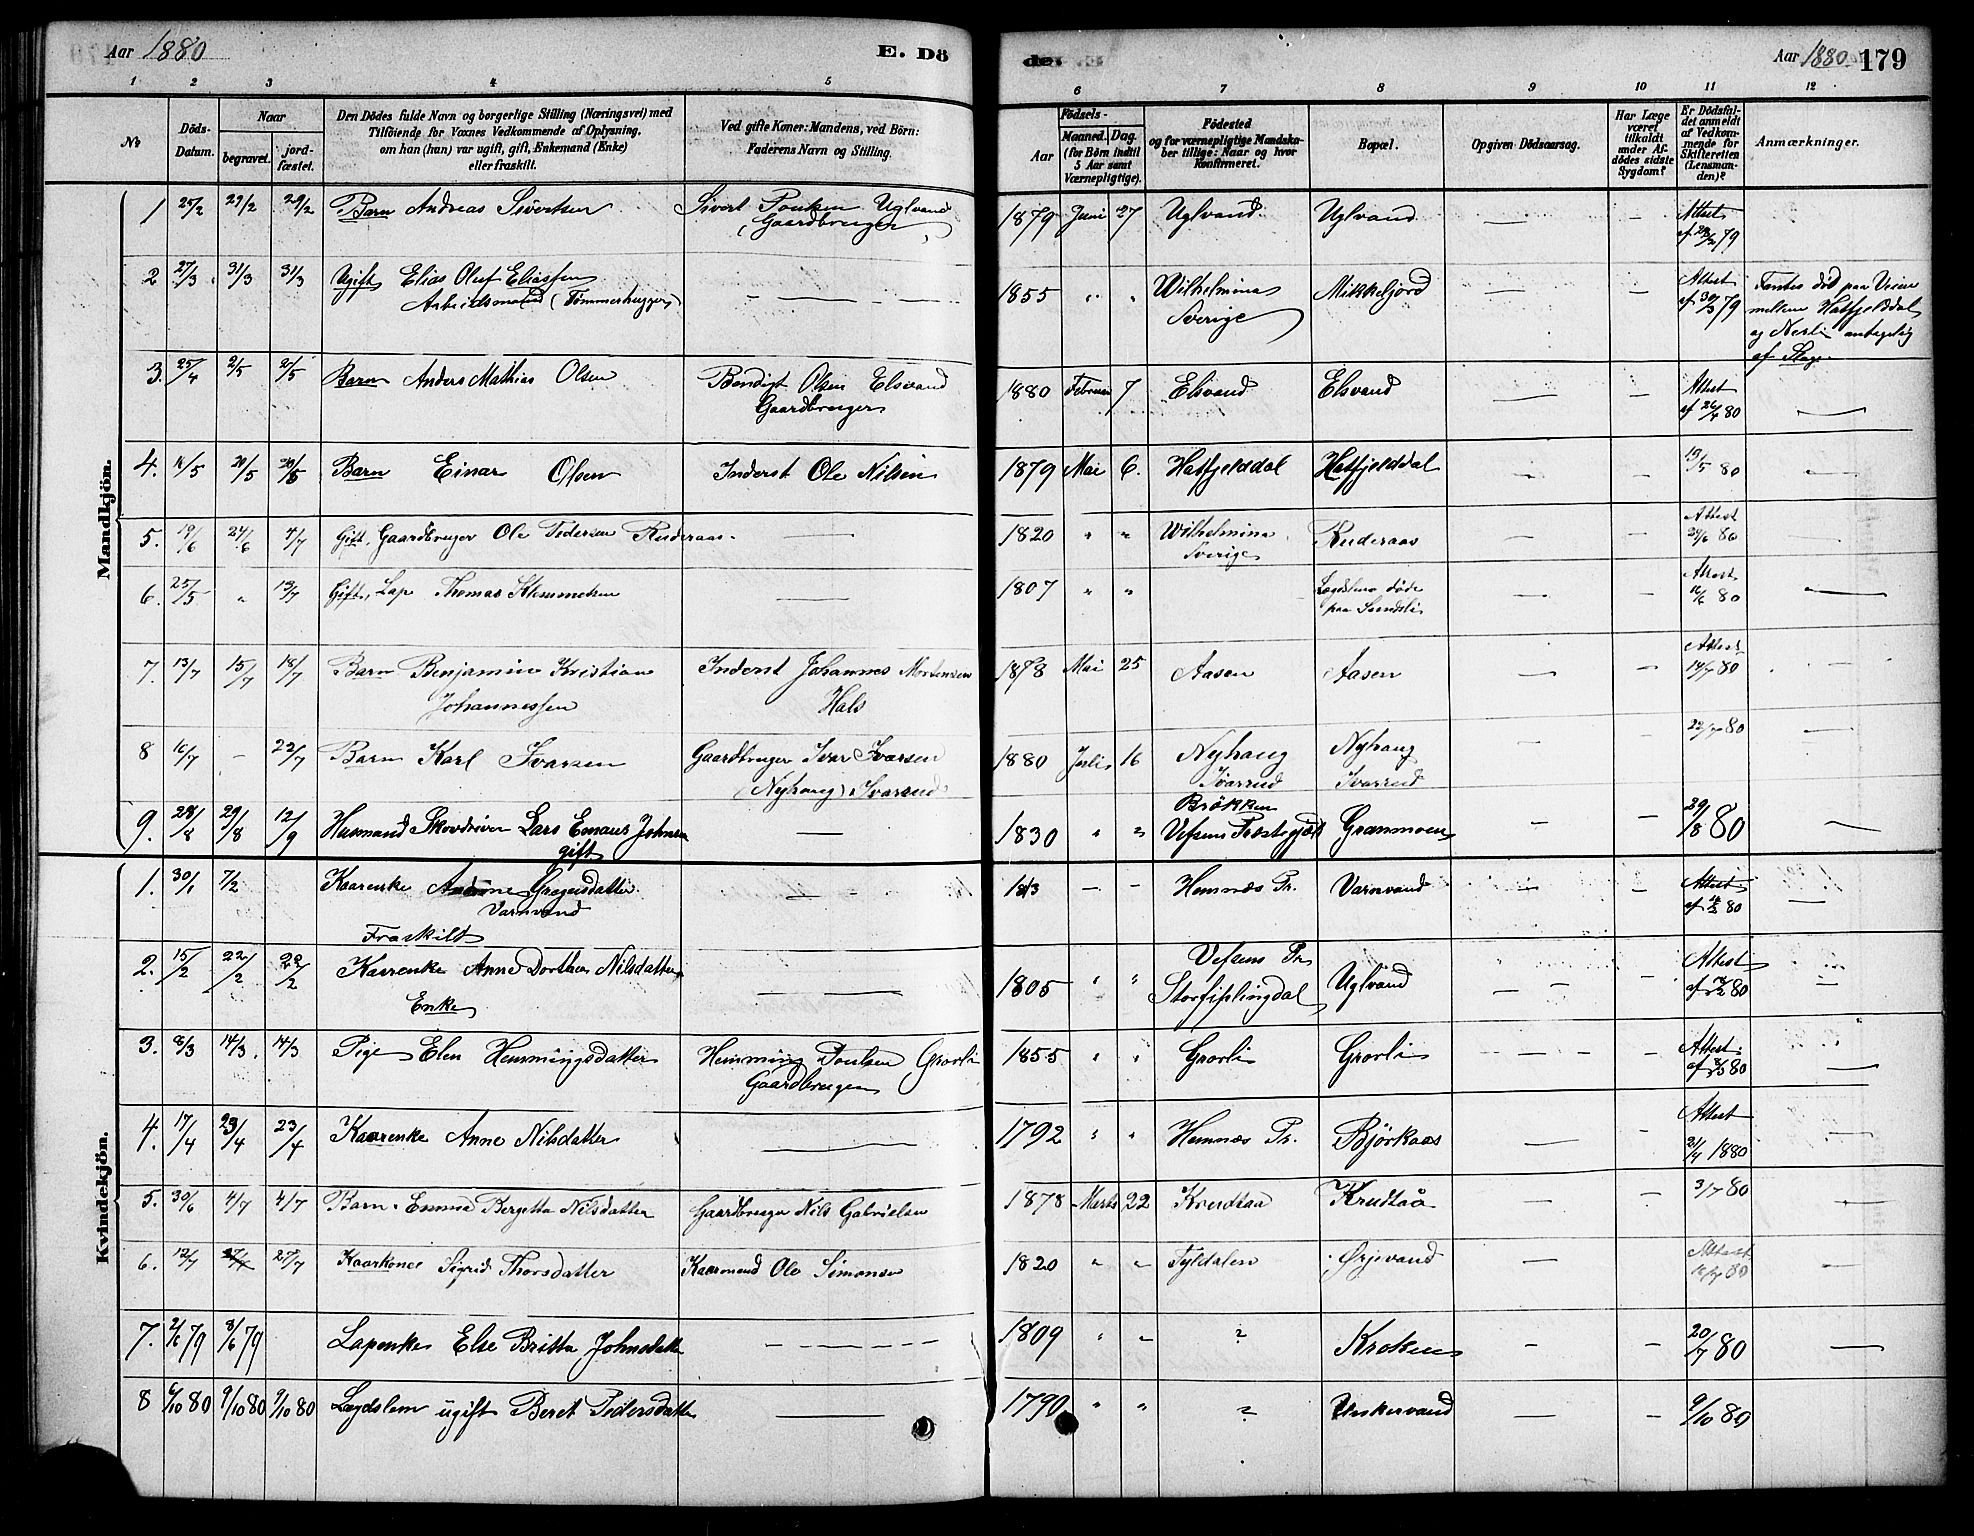 Aar 1880
E. Dö
de.
Aar 1880. 179
1 2 3 4 5 6 7 8 9 10 11 12
No
Döds-Datum.
Naar
begravet.
jord-fæstet.
Den Dödes fulde Navn og borgerlige Stilling (Næringsvei) med
Tilföiende for Voxnes Vedkommende af Oplysning,
om han (hun) var ugift, gift, Enkemand (Enke)
eller fraskilt.
Ved gifte Koner: Mandens, ved Börn:
Faderens Navn og Stilling.
Födsels-
Aar
Maaned. Dag.
(for Börn indtil
5 Aar samt
Værnepligtige).
Födested
og for værnepligtige Mandska-
ber tillige: Naar og hvor
konfirmeret.
Bopæl.
Opgiven Dödsaarsag.
Har Læge
været
tilkaldt
under Af-
dödes sidste
Sygdom?
Er Dödsfal-
det anmeldt
af Vedkom-
mende for
Skifteretten
(Lensman-
den)?
Anmærkninger.
Mandkjön.
1 25/2 29/2 29/2 Barn Andreas Sivertsen Sivert Poulsen Uglvand 1879 Juni 27 Uglvand Uglvand — — Attest
Gaardbruger af 28/2 79
2 27/3 31/3 31/3 Ugift Elias Oluf Eliassen — 1855 " " Wilhelmina Mikkeljord — — Attest Fantes død paa Veien
Arbeidsmand (Tømmerhugger) Sverige af 30/3 79 mellem Hatfjelddal
og Nerli antagelig
af Slag.
3. 25/4 2/5 2/5 Barn Anders Mathias Olsen Bendigt Olsen Elsvand 1880 Februar 7 Elsvand Elsvand — — Attest
Gaardbruger af 26/4 80 —
4. 14/5 20/5 20/5 Barn Einar Olsen Inderst Ole Nilsen 1879 Mai 6. Hatfjelddal Hatfjelddal — — 19/5 80
5. 19/6 24/6 4/7 Gift, Gaardbruger Ole Pedersen Ruderaas. — 1820 " " Wilhelmina Ruderaas — — Attest
Sverige 24/6 80
6. 25/5 " 19/7 Gift, Lap Thomas Klemmetsen — 1807 " " Lægdslem døde — — Attest —
paa 16/6 80
7. 13/7 15/7 18/7 Barn Benjamin Kristian Inderst Johannes Mortensen 1878 Mai 25 Aasen Aasen — — Attest
Johannessen Hals 14/7 80
8 16/7 — 22/7 Barn Karl Ivarsen Gaardbruger Ivar Ivarsen 1880 Juli 16 Nyhaug Nyhaug — — 22/7 80 —
(Nyhaug) Ivarrud Ivarrud Ivarrud
Brökken
9. 28/8 29/8 12/9 Husmand Skovdriver Lars Emaus Johnsen — 1830 " " Vefsens Præstegjæld Granmoen — — 29/8 80 —
gift
Kvindekjön.
1. 30/1 7/2 Kaarenke Gregersdatter — 1813 — — Hemnæs Pr. Varnvand — — Attest
Varnvand af 80 —
Fraskilt
2. 15/2 22/2 22/2 Kaarenke Anne Dorthea Nilsdatter — 1805 " " Vefsens Pr Uglvand — — Attest
Enke Storfiplingdal af 80 —
3. 8/3 14/3 14/3 Pige Elen Hemmingsdatter Hemming Poulsen Grovli 1855 " " Grovli Grovli — — Attest
Gaardbruger af 80 —
4. 17/4 23/4 23/4 Kaarenke Anne Nilsdatter — 1792 " " Hemnæs Pr. Björkaas — — Attest
21/4 1880
5. 30/6 4/7 4/7 Barn Emma Bergetta Nilsdatter Gaardbruger Nils Gabrielsen 1878 Marts 22 Krudtaa Krudtaa — — 3/7 80 —
6. 12/7 27/7 Kaarkone Sigrid Thorsdatter Kaarmand Ole Simonsen 1820 " " Tyldalen Ørjevand — — Attest —
80
7. 2/6 79 8/6 79 Lapenke Else Britta Johnsdatter — 1809 " " ? Kroken — — 20/7 80 —
8 6/10 80 9/10 80 9/10 80 Lægdslem ugift Beret Pedersdatter — 1790 " " ? Unkervand — — 9/10 80